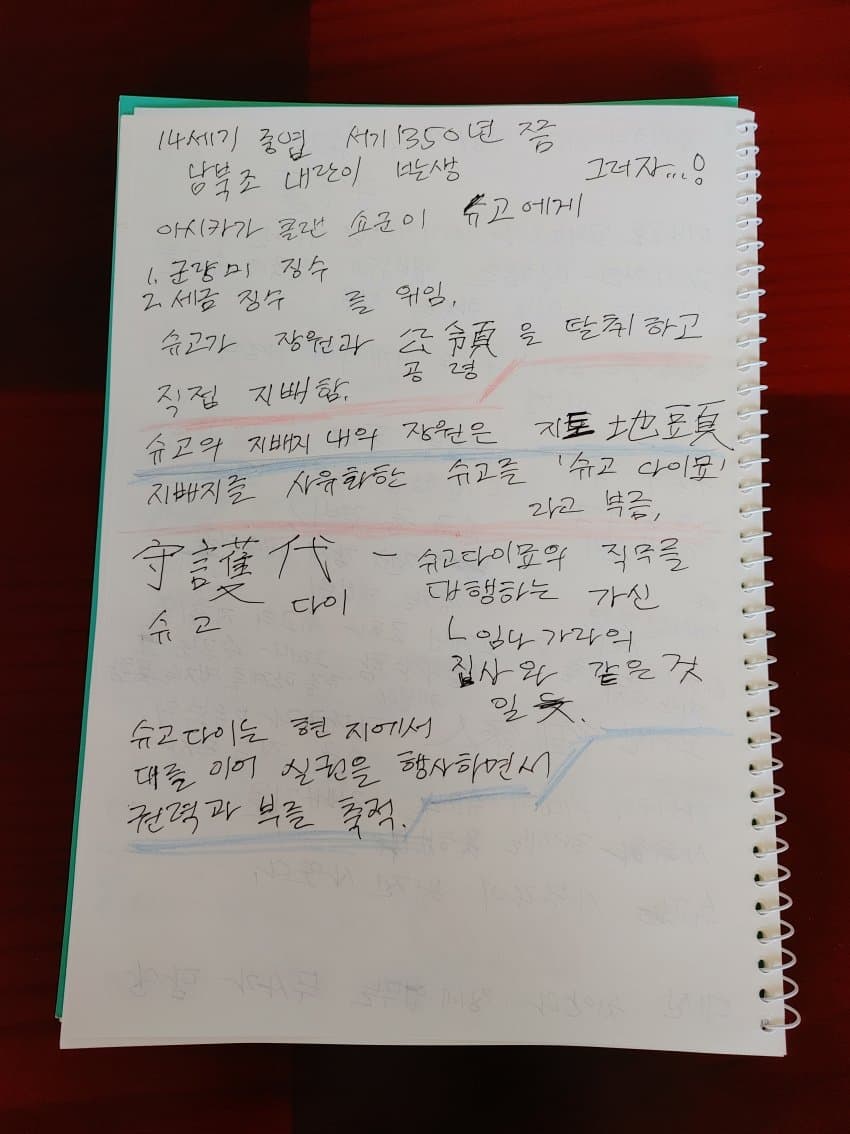 14세기 중엽 서기 1350년 쯤
남북조 내란이 발생 그러자...!
아시카가 클랜 쇼군이 슈고에게
1. 군량미 징수
2. 세금 징수 를 위임.
슈고가 장원과 公領을 탈취하고
공령
직접 지배함.
슈고의 지배지 내의 장원은 지토 地頭
지배지를 사유화한 슈고를 '슈고 다이묘'
라고 부름,
守護代 - 슈고다이묘의 직무를
슈고 다이 대행하는 가신
ㄴ 임나가라의
집사와 같은 것
일 듯.
슈고다이는 현지에서
대를 이어 실권을 행사하면서
권력과 부를 축적.